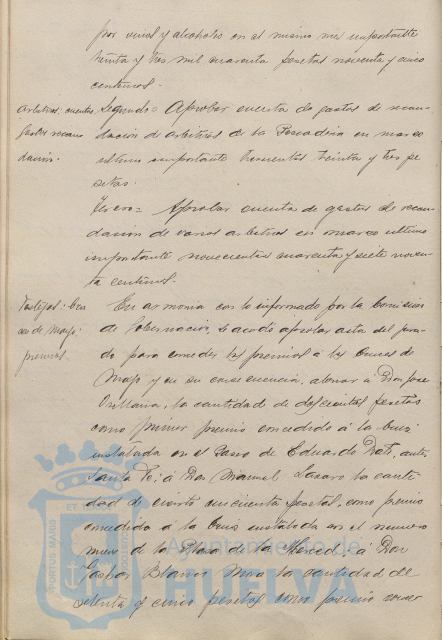 por vinos y alcoholes en el mismo mes importante
treinta y tres mil cuarenta pesetas noventa y cinco
centimos.
Arbitrios: cuentas
gastos recau
dación.
Segundo = Aprobar cuenta de gastos de recau
dación de arbitrios de la Pescaderia en marzo
ultimo importante trescientas treinta y tres pe
setas.
Tercero = Aprobar cuenta de gastos de recau
dación de varios arbitrios en marzo ultimo
importante novecientas cuarenta y siete noven
ta centimos.
Festejos: Cru
ces de Mayo:
premios.
En armonia con lo informado por la Comisión
de Gobernación, se acordó aprobar acta del jura
do para conceder los premios a las Cruces de
Mayo y en su consecuencia, abonar á Don Jose
Orellana, la cantidad de doscientas pesetas
como primer premio concedido á la Cruz
instalada en el Paseo de Eduardo Dato, antes
Santa Fé; á Don Manuel Lazaro la canti
dad de ciento cincuenta pesetas, como premio
concedido a la Cruz instalada en el numero
nueve de la Plaza de la Merced; á Don
Gaspar Blanco la cantidad de
setenta y cinco pesetas como premio conce
PORTUS MARIS ET
Ayuntamiento de
HUELVA